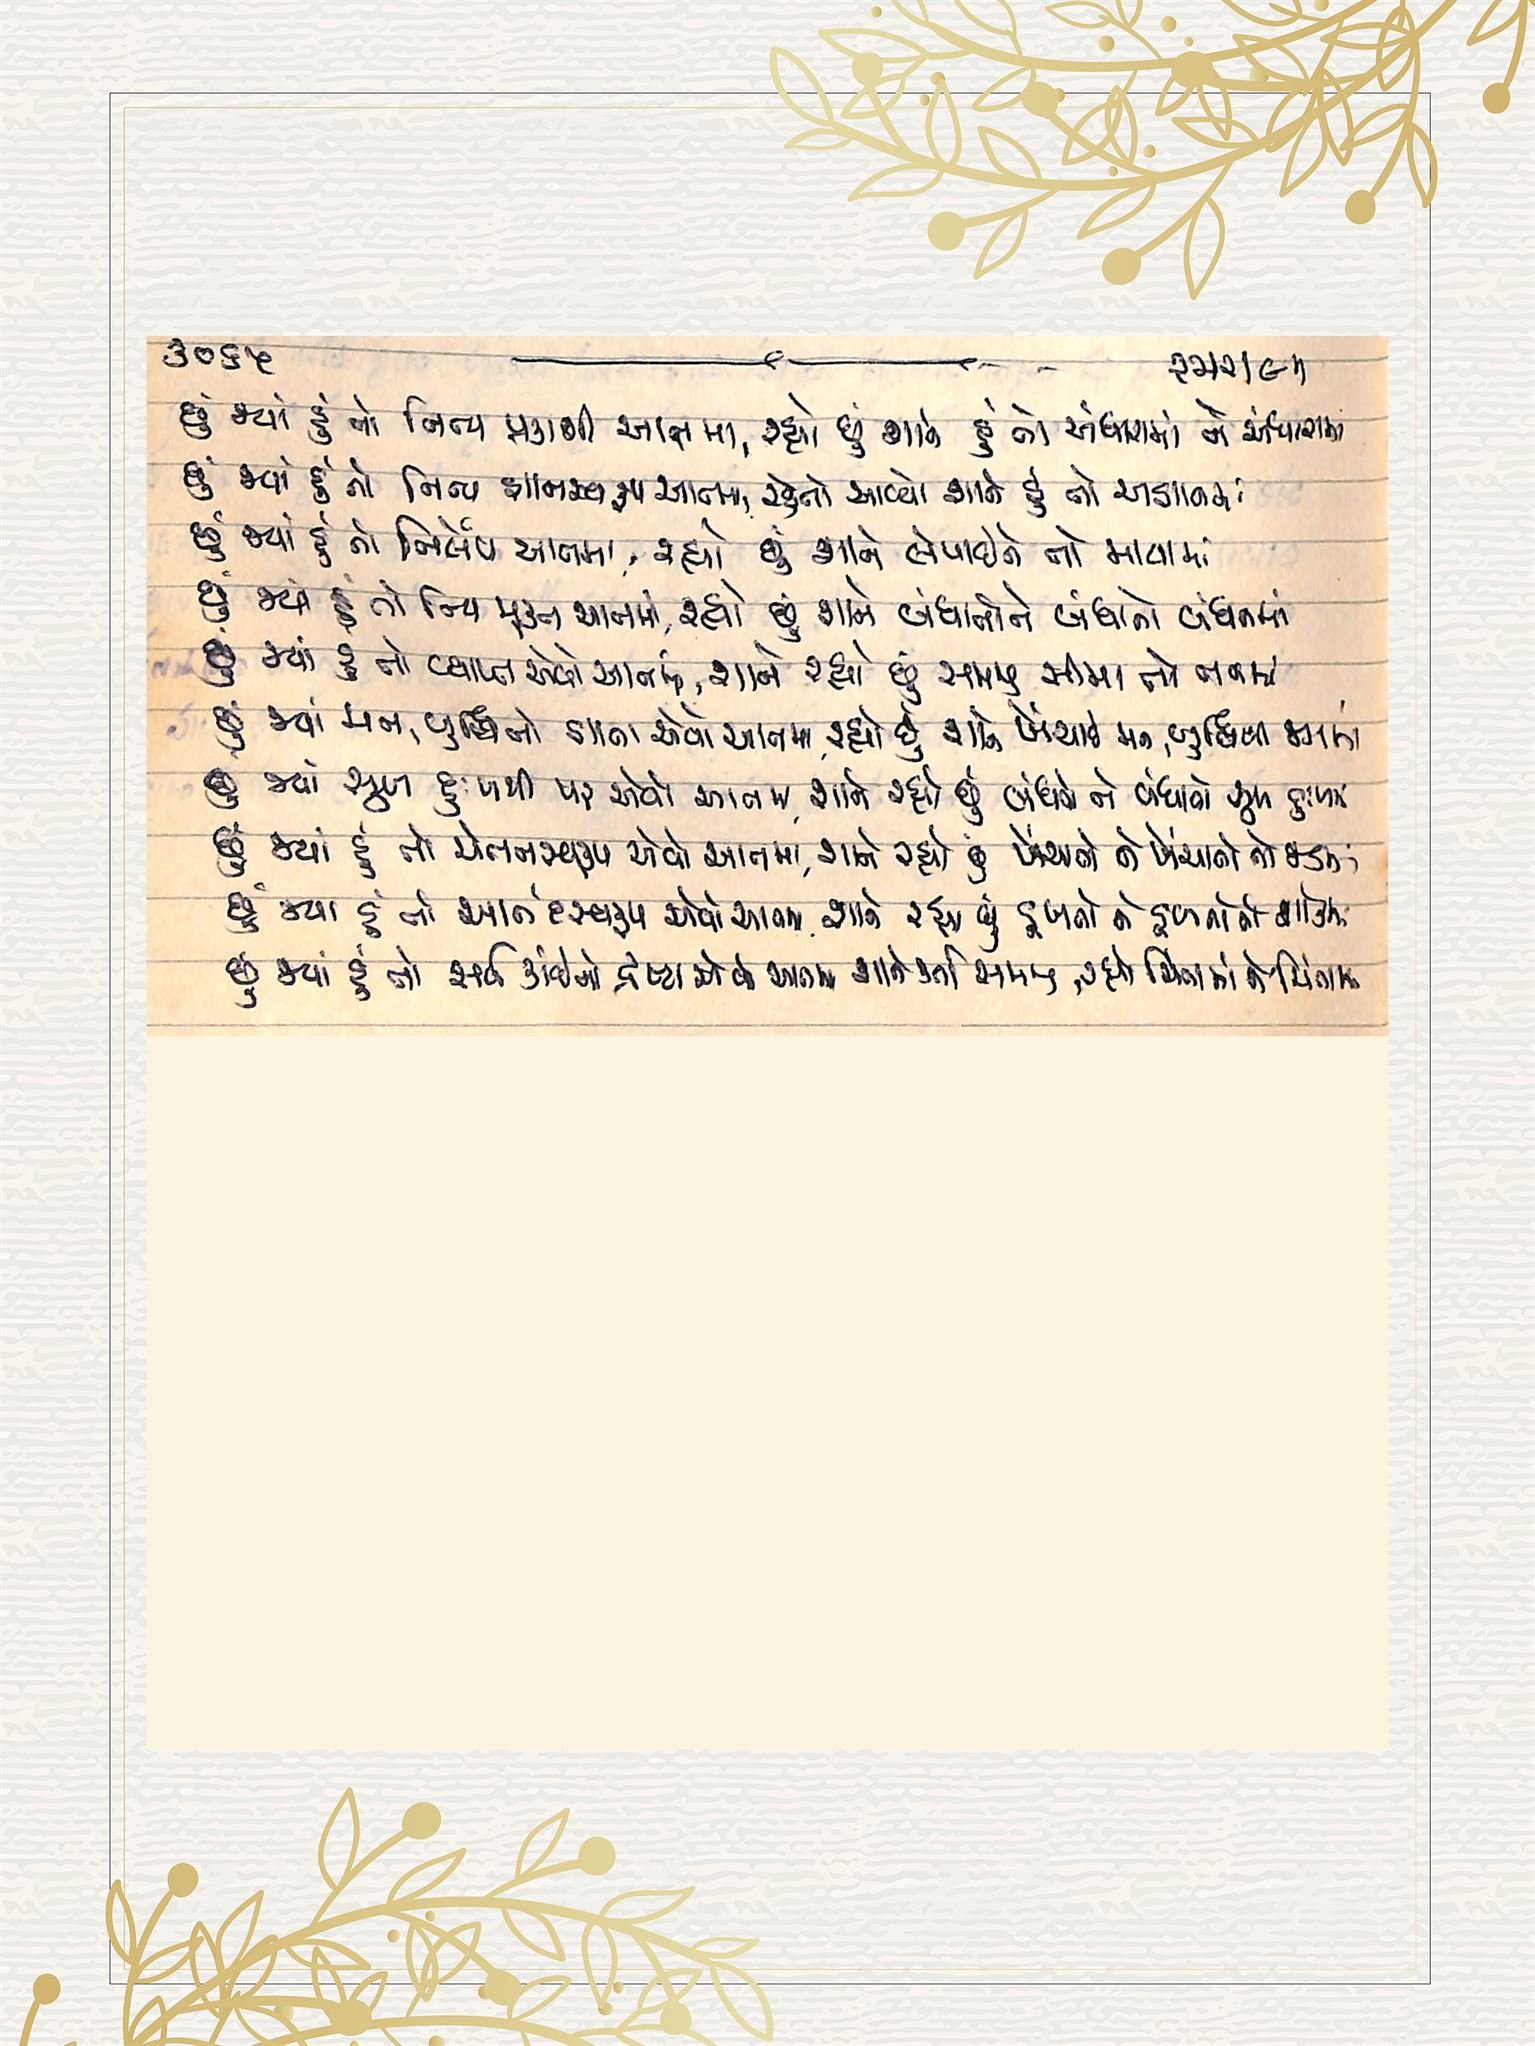 ૩૦૬૫
છું જ્યાં હું તો નિત્ય પ્રકાશી આત્મા, રહ્યો છું શાને હું તો અંધારામાં ને અંધારામાં
છું જ્યાં હું તો નિત્ય જ્ઞાનસ્વરૂપ આત્મા, રહેતો આવ્યો શાને હું તો અજ્ઞાનમાં
છું જ્યાં હું તો નિર્લેપ આત્મા, રહ્યો છું શાને લેપાઈને તો માયામાં
છું જ્યાં હું તો નિત્ય મુક્ત આત્મા, રહ્યો છું શાને બંધાતો ને બંધાતો બંધનમાં
છું જ્યાં હું તો વ્યાપ્ત એવો આત્મા, શાને રહ્યો છું સમજી સીમા તો તનમાં
છું જ્યાં મન, બુદ્ધિનો જ્ઞાતા એવો આત્મા, રહ્યો છું શાને ખેંચાઈ મન, બુદ્ધિના
છું જ્યાં સુખ દુઃખથી પર એવો આત્મા, શાને રહ્યો છું બંધાતો ને બંધાતો સુખ દુઃખમાં
છું જ્યાં હું તો ચેતનસ્વરૂપ એવો આત્મા, શાને રહ્યો છું ખેંચાતો ને ખેંચાતો તો જડમાં
છું જ્યાં હું તો આનંદસ્વરૂપ એવો આત્મા, શાને રહ્યો છું ડૂબતો ને ડૂબતો તો શોકમાં
છું જ્યાં હું તો સર્વ કાંઈનો દ્રષ્ટા એવો આત્મા શાને કર્તા સમજી, રહ્યો ચિંતામાં ને ચિંતામાં